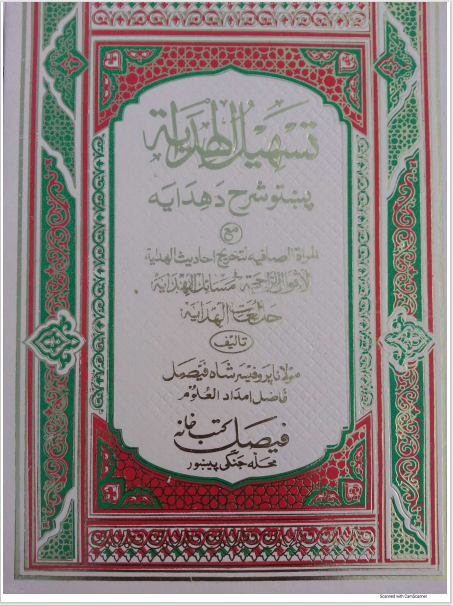 تسهيل الهداية
پښتو شرح د هدايه
مع
المرآة الصافيه لتخريج احاديث الهداية
الاقوال الراجحة مسائل الهداية
الهداية
تاليف
مولانا پروفيسر شاه فيصل
فاضل امداد العلوم
فيصل کتب خانه
محله جنگی پيښور
Scanned with CamScanner